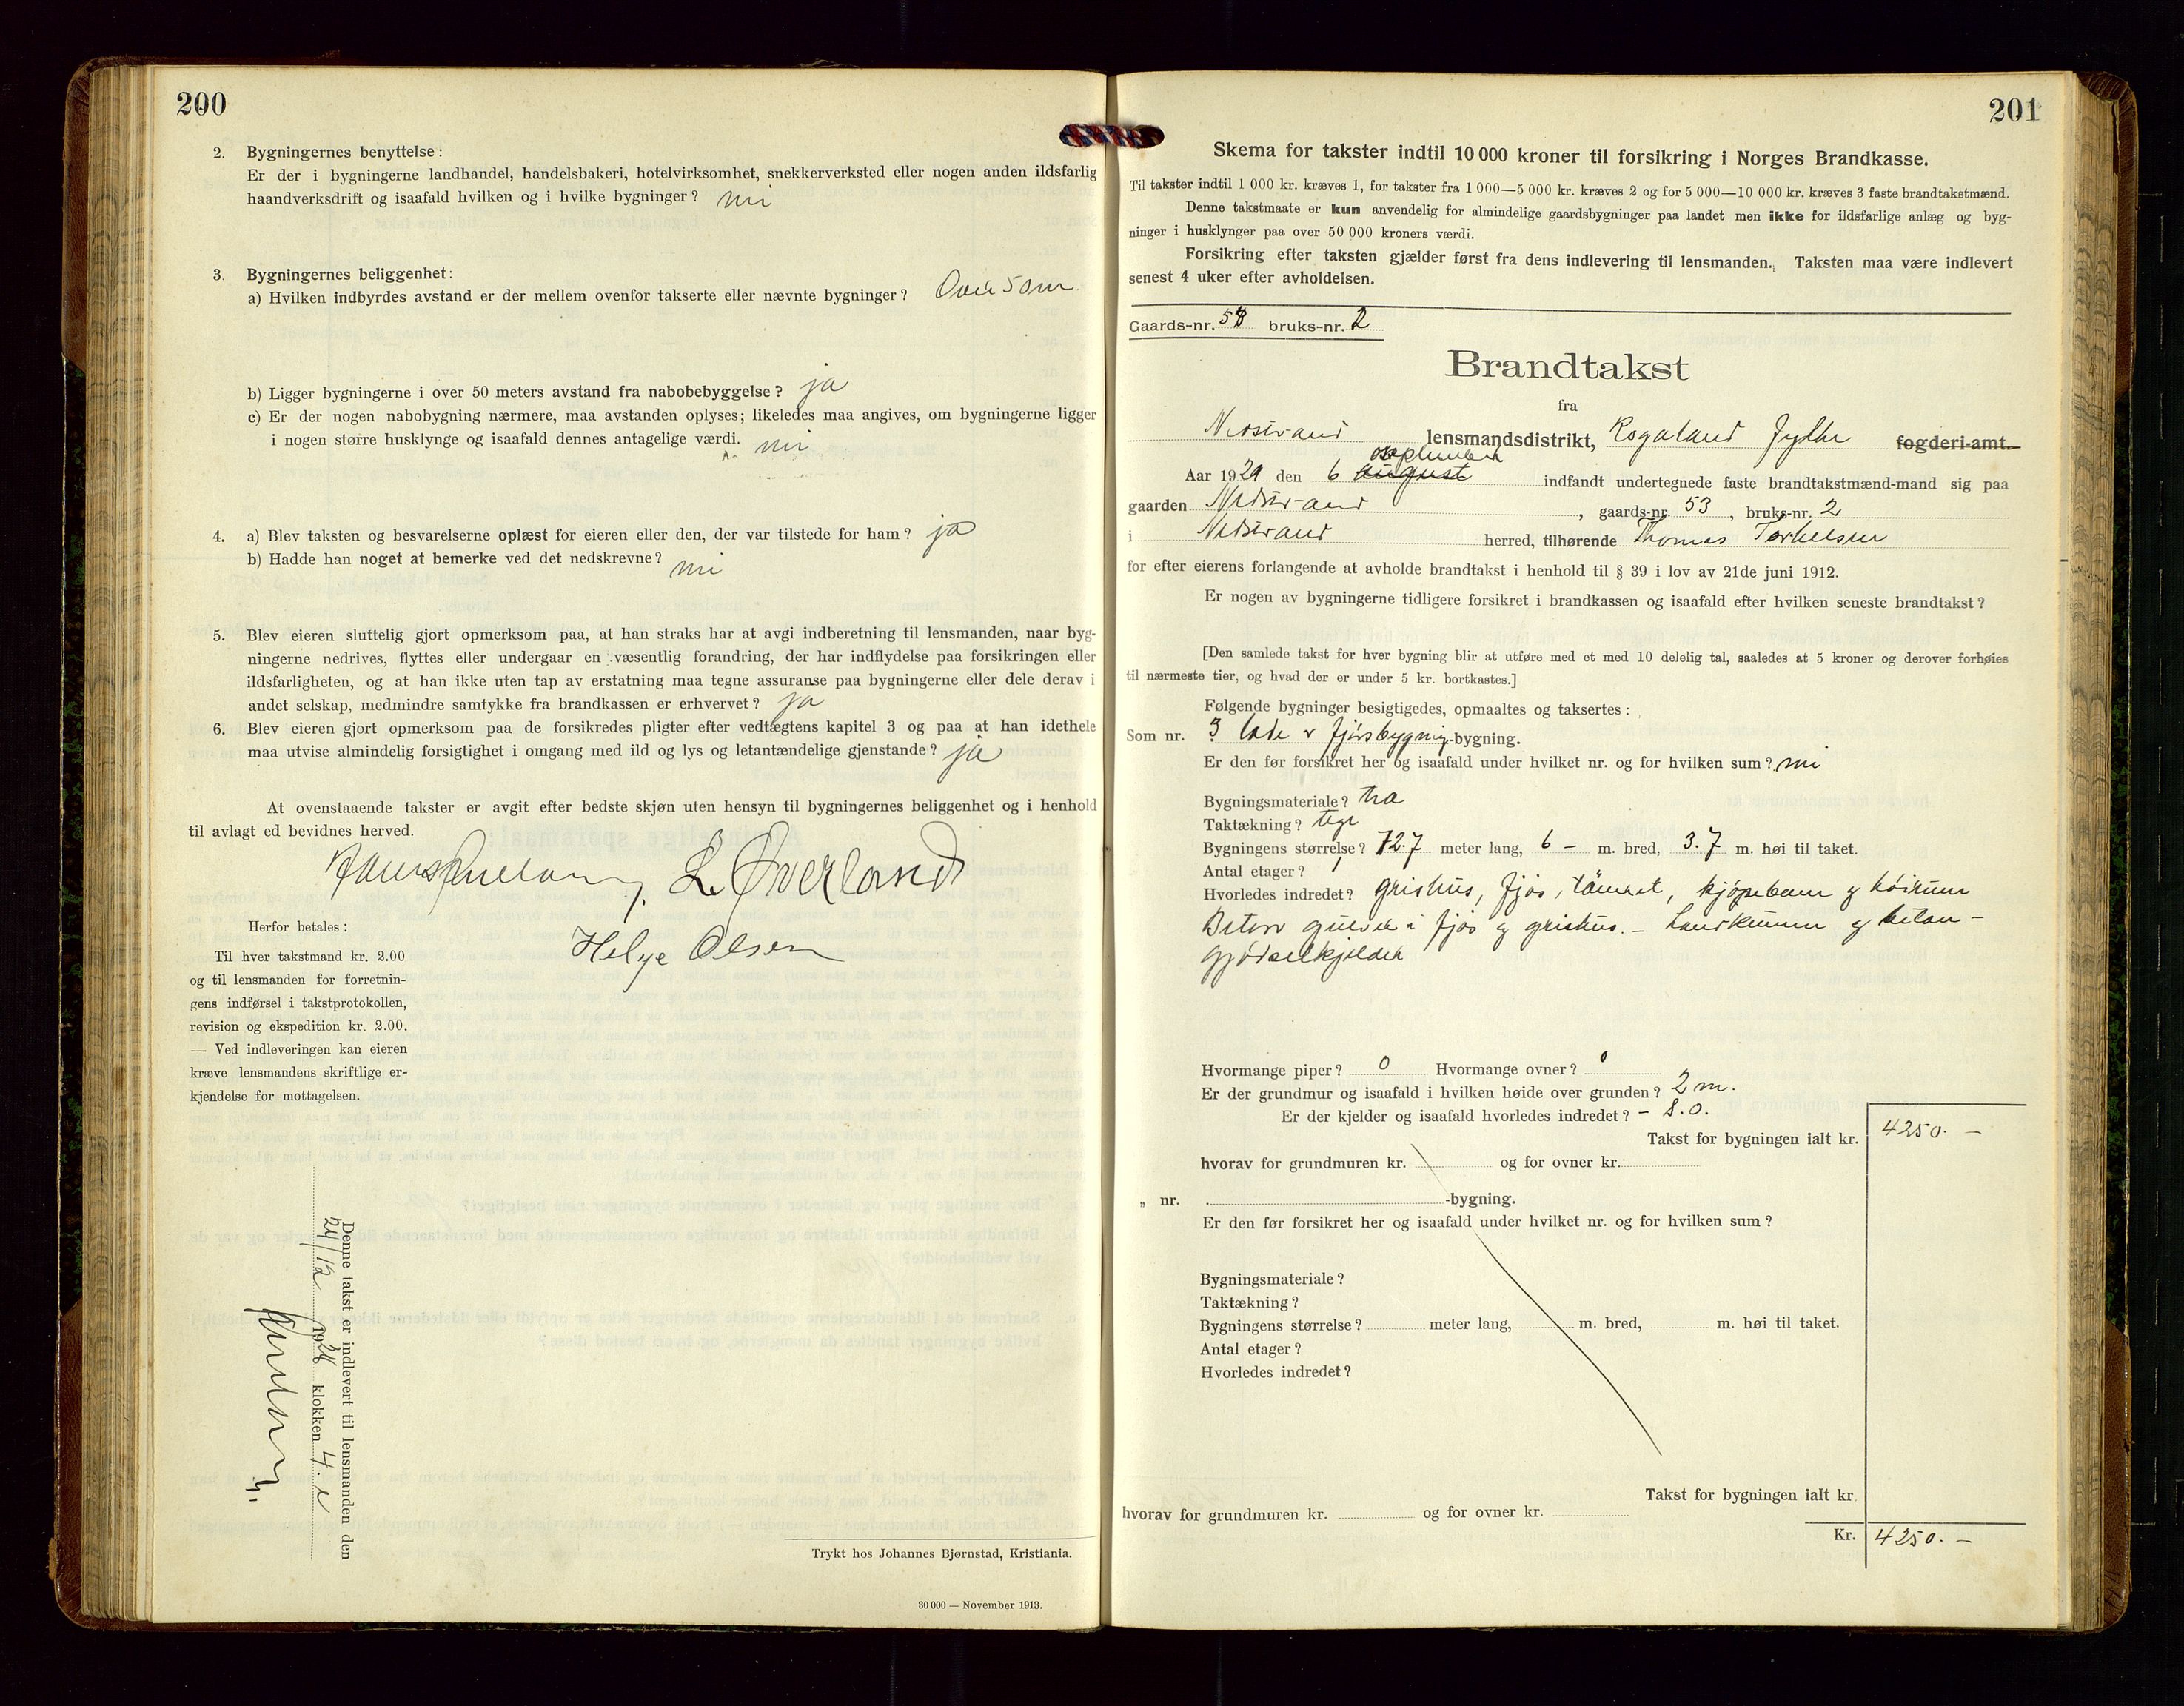 200
2. Bygningernes benyttelse:
Er der i bygningerne landhandel, handelsbakeri, hotelvirksomhet, snekkerverksted eller nogen anden ildsfarlig
haandverksdrift og isaafald hvilken og i hvilke bygninger? nei
3. Bygningernes beliggenhet:
a) Hvilken indbyrdes avstand er der mellem ovenfor takserte eller nævnte bygninger? Over 50 m.
b) Ligger bygningerne i over 50 meters avstand fra nabobebyggelse? ja
c) Er der nogen nabobygning nærmere, maa avstanden oplyses; likeledes maa angives, om bygningerne ligger
i nogen større husklynge og isaafald dennes antagelige værdi. nei
4. a) Blev taksten og besvarelserne oplæst for eieren eller den, der var tilstede for ham? ja
b) Hadde han noget at bemerke ved det nedskrevne? nei
5. Blev eieren sluttelig gjort opmerksom paa, at han straks har at avgi indberetning til lensmanden, naar byg-
ningerne nedrives, flyttes eller undergaar en væsentlig forandring, der har indflydelse paa forsikringen eller
ildsfarligheten, og at han ikke uten tap av erstatning maa tegne assuranse paa bygningerne eller dele derav i
andet selskap, medmindre samtykke fra brandkassen er erhvervet? ja
6. Blev eieren gjort opmerksom paa de forsikredes pligter efter vedtægtens kapitel 3 og paa at han idethele
maa utvise almindelig forsigtighet i omgang med ild og lys og letantændelige gjenstande? ja
At ovenstaaende takster er avgit efter bedste skjøn uten hensyn til bygningernes beliggenhet og i henhold
til avlagt ed bevidnes herved.
L. Øverland
Helge Olsen
Herfor betales:
Til hver takstmand kr. 2.00
og til lensmanden for forretnin-
gens indførsel i takstprotokollen,
revision og ekspedition kr. 2.00.
— Ved indleveringen kan eieren
kræve lensmandens skriftlige er-
kjendelse for mottagelsen.
Denne takst er indlevert til lensmanden den
24/12 19 klokken 4. e
Trykt hos Johannes Bjørnstad, Kristiania.
30 000 — November 1918.
201
Skema for takster indtil 10 000 kroner til forsikring i Norges Brandkasse.
Til takster indtil 1 000 kr. kræves 1, for takster fra 1 000—5 000 kr. kræves 2 og for 5 000—10 000 kr. kræves 3 faste brandtakstmænd.
Denne takstmaate er kun anvendelig for almindelige gaardsbygninger paa landet men ikke for ildsfarlige anlæg og byg-
ninger i husklynger paa over 50 000 kroners værdi.
Forsikring efter taksten gjælder først fra dens indlevering til lensmanden. Taksten maa være indlevert
senest 4 uker efter avholdelsen.
Gaards-nr. 53 bruks-nr. 2
Brandtakst
fra
Nedstrand lensmandsdistrikt, Rogaland fylke fogderi-amt.
september
Aar 19 den 6 august indfandt undertegnede faste brandtakstmænd-mand sig paa
gaarden Nedstrand, gaards-nr. 53, bruks-nr. 2
i Nedstrand herred, tilhørende Thomas Torkelsen
for efter eierens forlangende at avholde brandtakst i henhold til § 39 i lov av 21de juni 1912.
Er nogen av bygningerne tidligere forsikret i brandkassen og isaafald efter hvilken seneste brandtakst?
[Den samlede takst for hver bygning blir at utføre med et med 10 delelig tal, saaledes at 5 kroner og derover forhøies
til nærmeste tier, og hvad der er under 5 kr. bortkastes.]
Følgende bygninger besigtigedes, opmaaltes og taksertes:
Som nr. 3 lade & fjøsbygnig-bygning.
Er den før forsikret her og isaafald under hvilket nr. og for hvilken sum? nei
Bygningsmateriale? træ
Taktækning? tegl
Bygningens størrelse? 12.7 meter lang, 6 – m. bred, 3.7 m. høi til taket.
Antal etager? 1
Hvorledes indredet? grishus, fjøs, tømret, høirum
Beton gulver i fjøs og grishus. – Landkummer og beton –
gjødselkjelder
Hvormange piper? 0 Hvormange ovner? 0
Er der grundmur og isaafald i hvilken høide over grunden? 2 m.
Er der kjelder og isaafald hvorledes indredet? – s.o.
Takst for bygningen ialt kr. 4250. –
hvorav for grundmuren kr. og for ovner kr.
„ nr. -bygning.
Er den før forsikret her og isaafald under hvilket nr. og for hvilken sum?
Bygningsmateriale?
Taktækning?
Bygningens størrelse? meter lang, m. bred, m. høi til taket.
Antal etager?
Hvorledes indredet?
Takst for bygningen ialt kr.
hvorav for grundmuren kr. og for ovner kr.
Kr. 4250. –